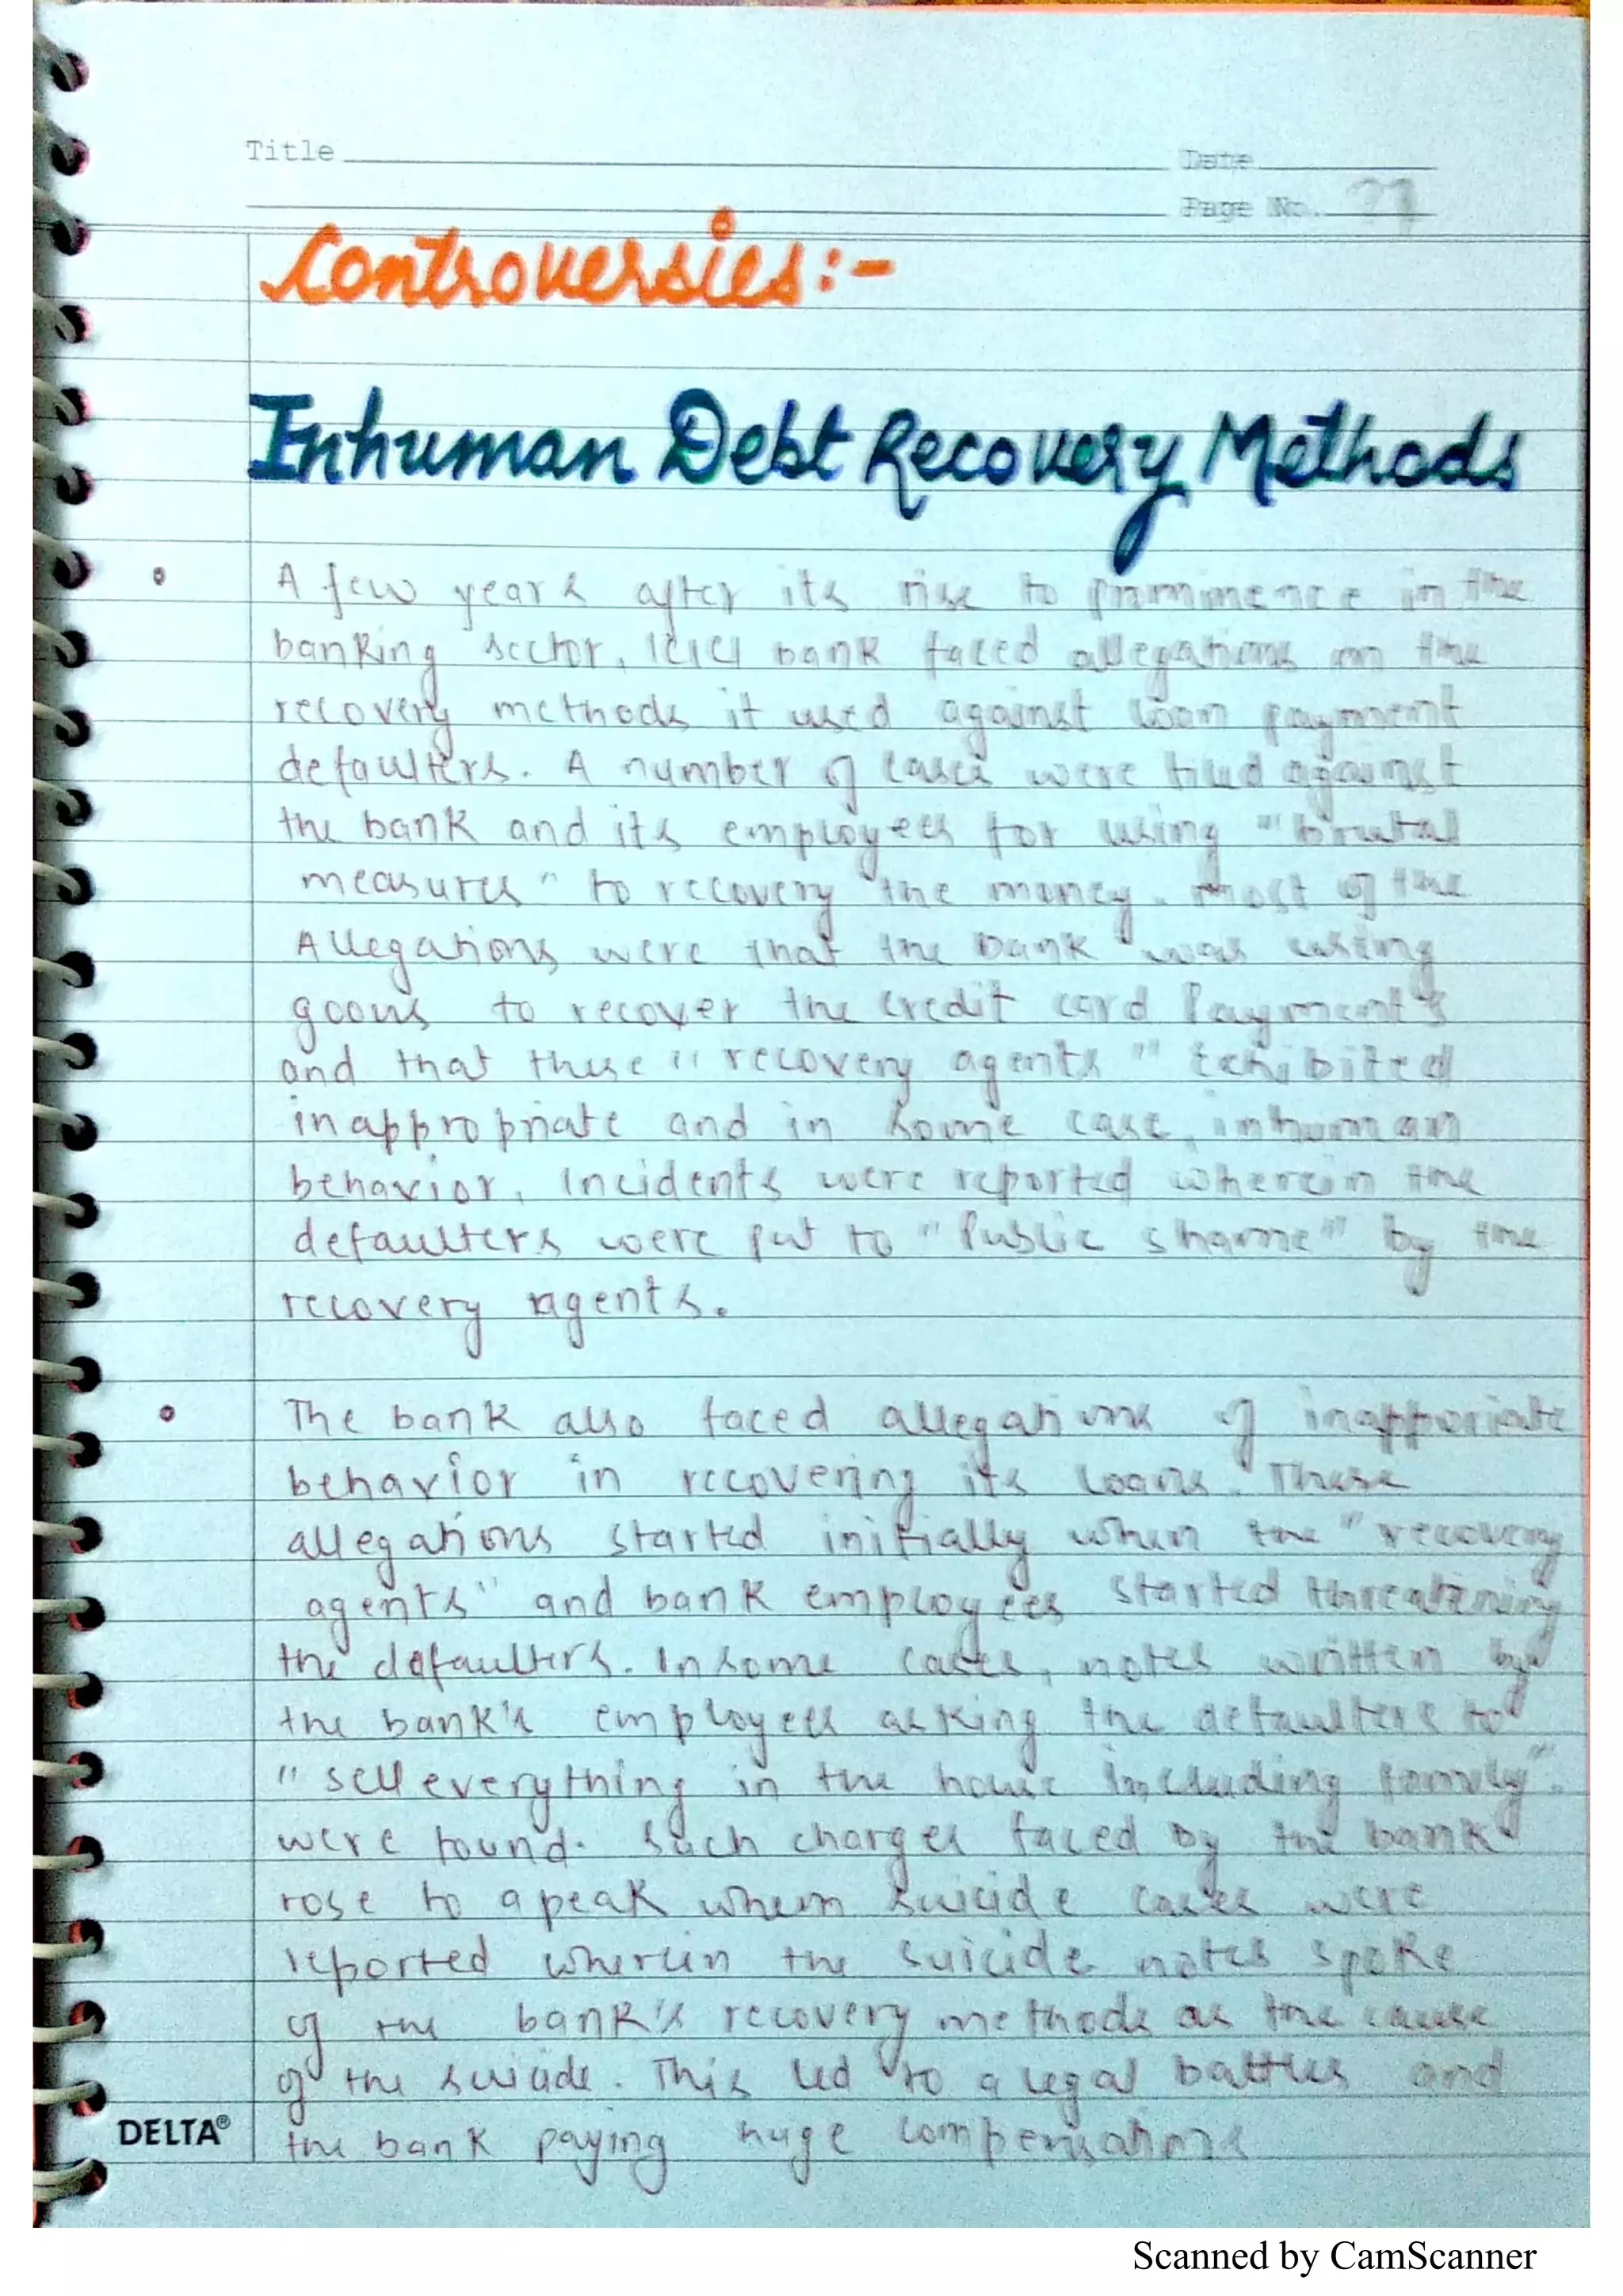 Title
Date
Page No. 71
Controversies:-
Inhuman Debt Recovery Methods
A few years after its rise to prominence in the
banking sector, ICICI bank faced allegations on the
recovery methods it used against loan payment
defaulters. A number of cases were filed against
the bank and its employees for using "brutal
measures" to recovery the money. most of the
Allegations were that the bank was using
goons to recover the credit card Payments
and that these "recovery agents" Exhibited
inappropriate and in some case, inhuman
behavior. Incidents were reported wherein the
defaulters were put to "Public shame" by the
recovery agents.
The bank also faced allegations of inapporiate
behavior in recovering its loans. These
allegations started initially when the "recovery
agents" and bank employees started threatening
the defaulters. In some cases, notes written by
the bank's employees asking the defaulters to
"sell everything in the house including family".
were found. Such charges faced by the bank
rose to a peak when suicide cases were
reported wherein the suicide notes spoke
of the bank's recovery methods as the cause
of the suicide. This led to a legal battles and
the bank paying huge compensations
DELTA®
Scanned by CamScanner